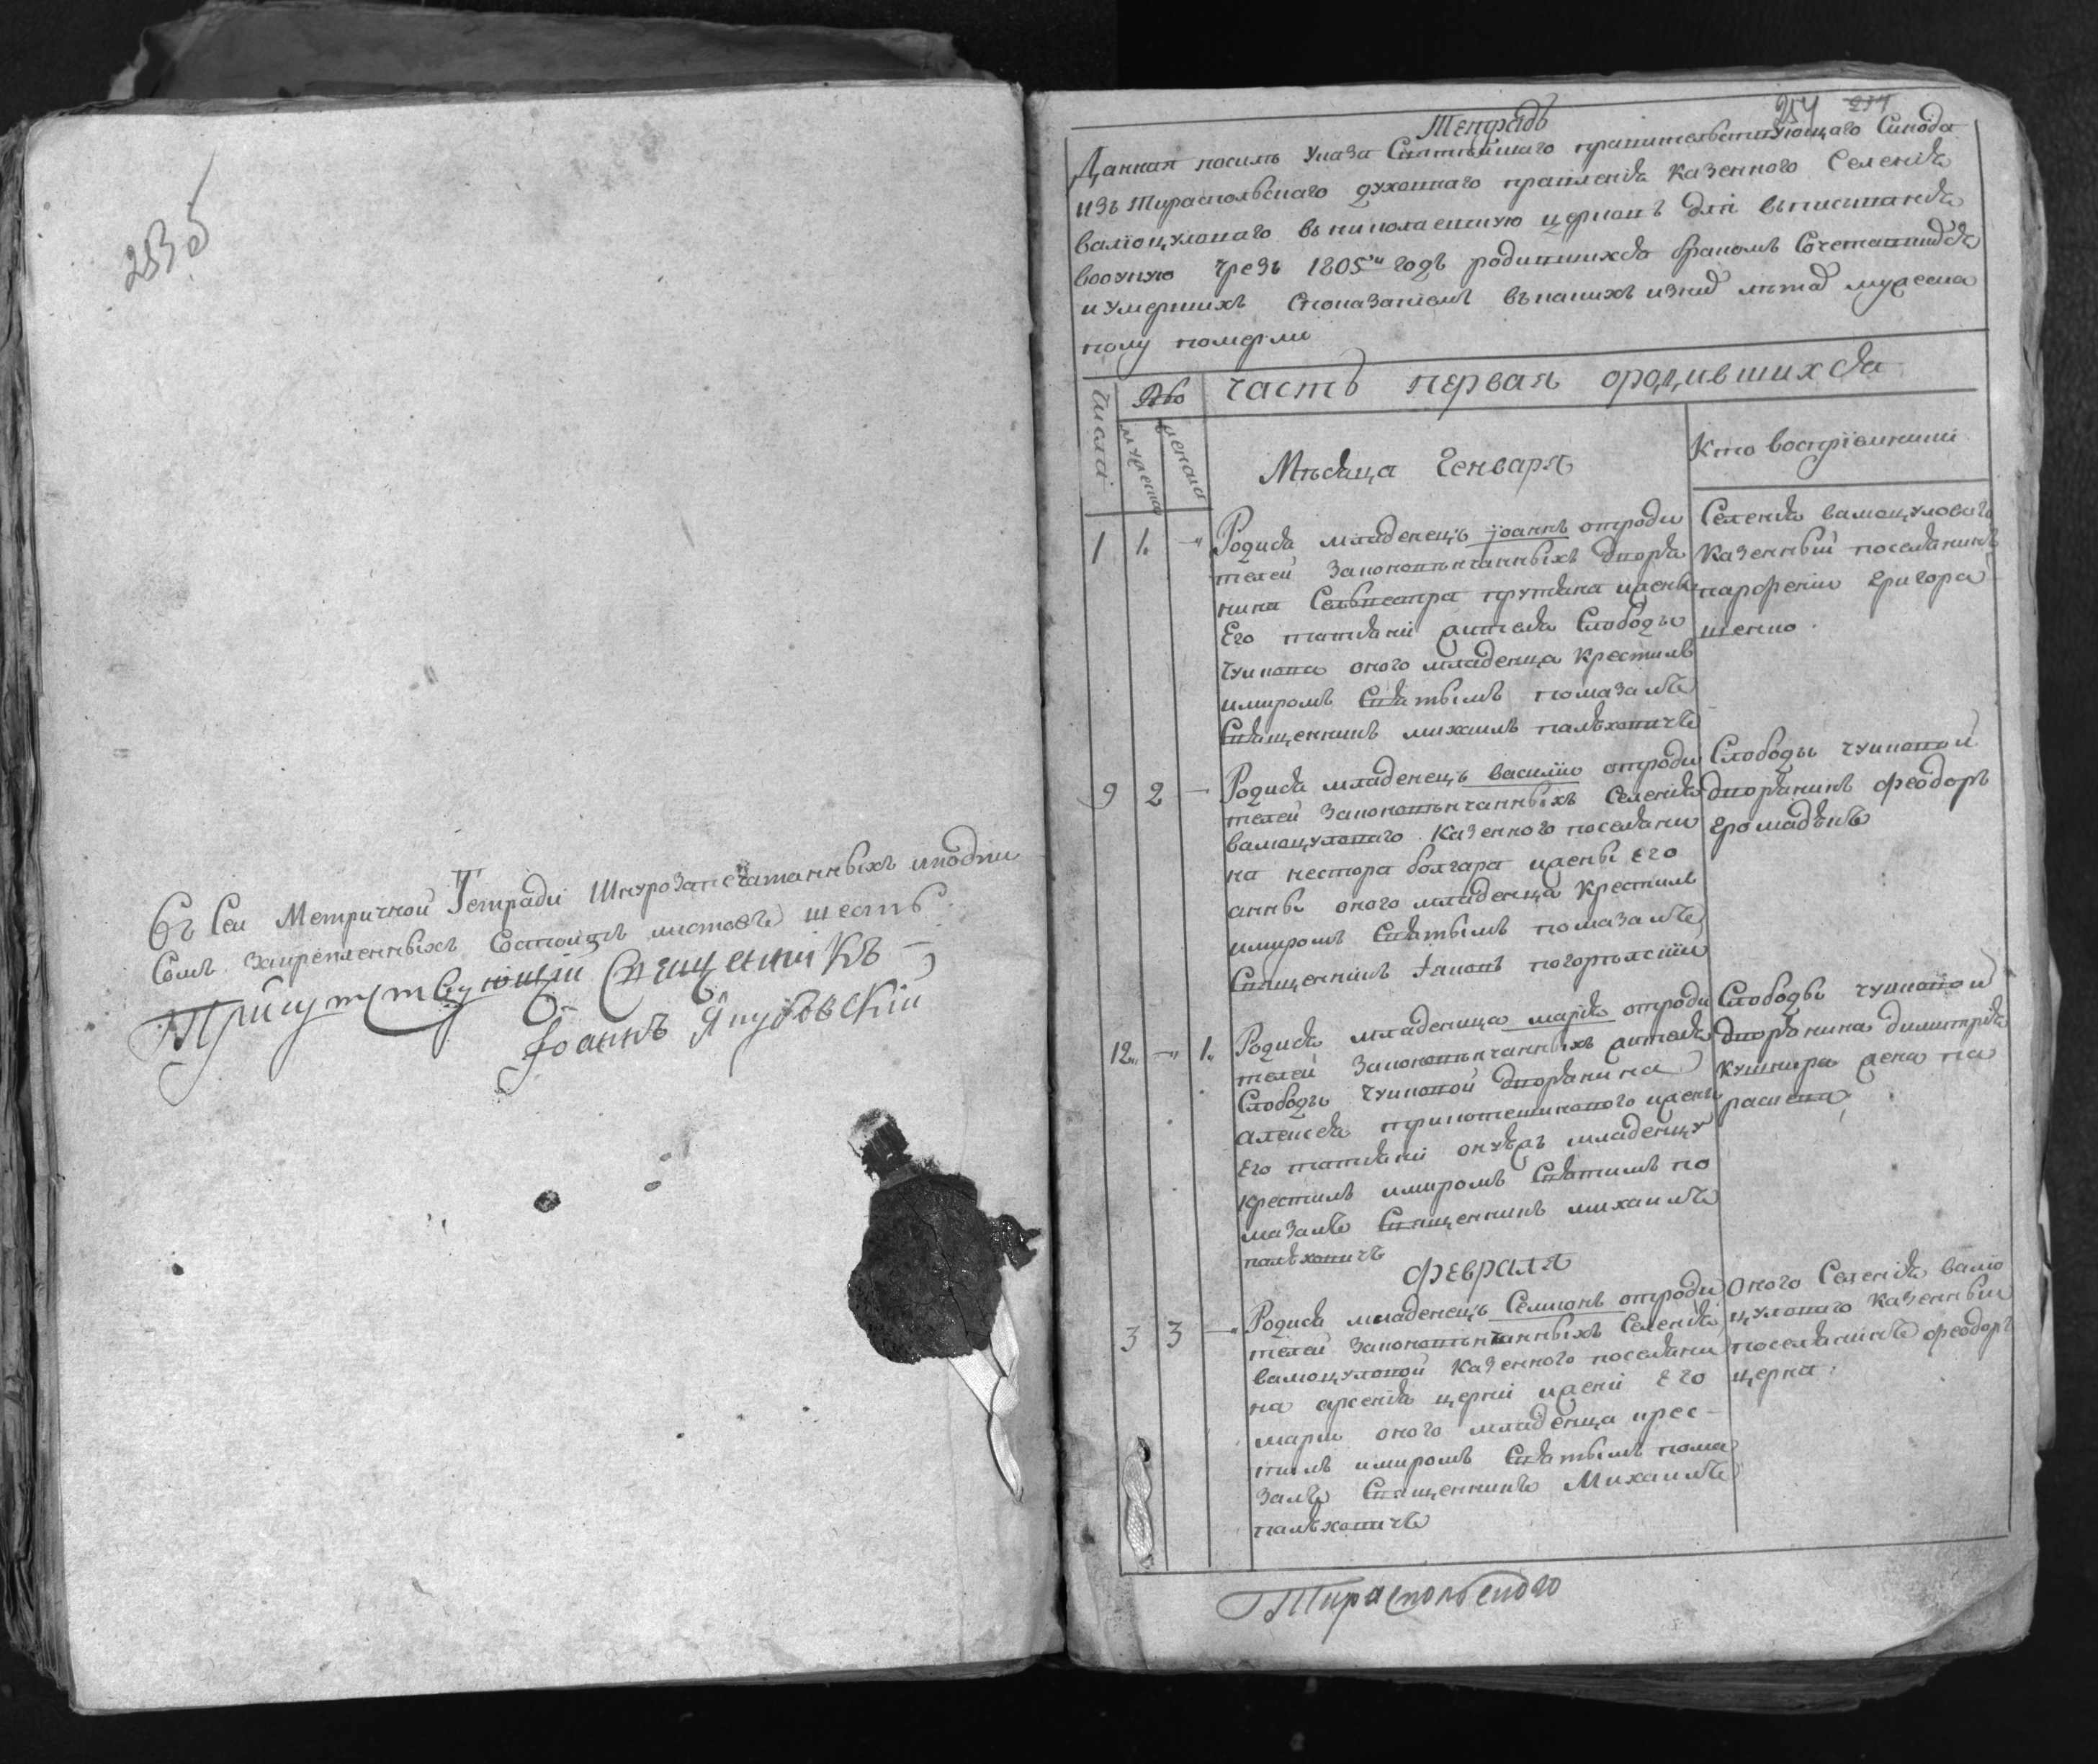 253 об
Въ Сеи Метричной Тетради Шнурозапечатанныхъ иподпи
Сомъ закрепленныхъ Состоитъ листовъ шесть
Присутствующій Священникъ
Іоаннъ Якубовскій
254 234
Тетрадь
Данная посилъ Указа Святѣйшаго правителствующаго Синода
изъ Тираспольскаго духовнаго правленія казенного Селенія
валюцуловаго въ николаевскую церковъ для вписыванія
вооную чрезъ 1805й годъ родившихся бракомъ Сочетавшихся
и умершихъ Споказаніемъ въ какихъ лѣта мужеска
полу померли
Числа
мужеска
женска
часть первая ородившихся
Мѣсяца Генваря
Кто воспріемники
1 1. —
Родися младенецъ іоаннъ отроди
телей законовѣнчанныхъ дворя
нина Селвестра прутяна ижены
Его татіани жителя Слободы
чункова оного младенца крестилъ
имиромъ Святымъ помазалъ
Священникъ михаилъ палѣховичъ
Селенія валюцуловаго
казенный поселянинъ
парфеніи григора
шенко.
9 2 —
Родися младенецъ василіи отроди
телей законовѣнчанныхъ Селенія
валюцуловаго казенного поселяни
на нестора болгара ижены его
анны оного младенца крестилъ
имиромъ Святымъ помазалъ
Священникъ іаковъ погорѣлскіи
Слободы чунковой
дворянинъ феодоръ
громадѣнъ
12. — 1.
Родися младеница марія отроди
телей законовѣнчанныхъ жителя
Слободы чунковой дворянина
алексѣя ижены
Его татіани онуюжъ младенцу
крестилъ имиромъ Святимъ по
мазалъ Священникъ михаилъ
палѣховичъ
Слободы чунковой
дворянина димитрія
кушнира жена па
раскева
февраля
3 3 —
Родися младенецъ Семионъ отроди
телей законовѣнчанныхъ Селенія
валюцуловой казенного поселяни
на арсенія церни ижени его
марии оного младенца крес-
тилъ имиромъ Святымъ пома
залъ Священникъ Михаилъ
палѣховичъ
Оного Селенія валю
цуловаго казенныи
поселянинъ феодоръ
церна.
Тираспольского